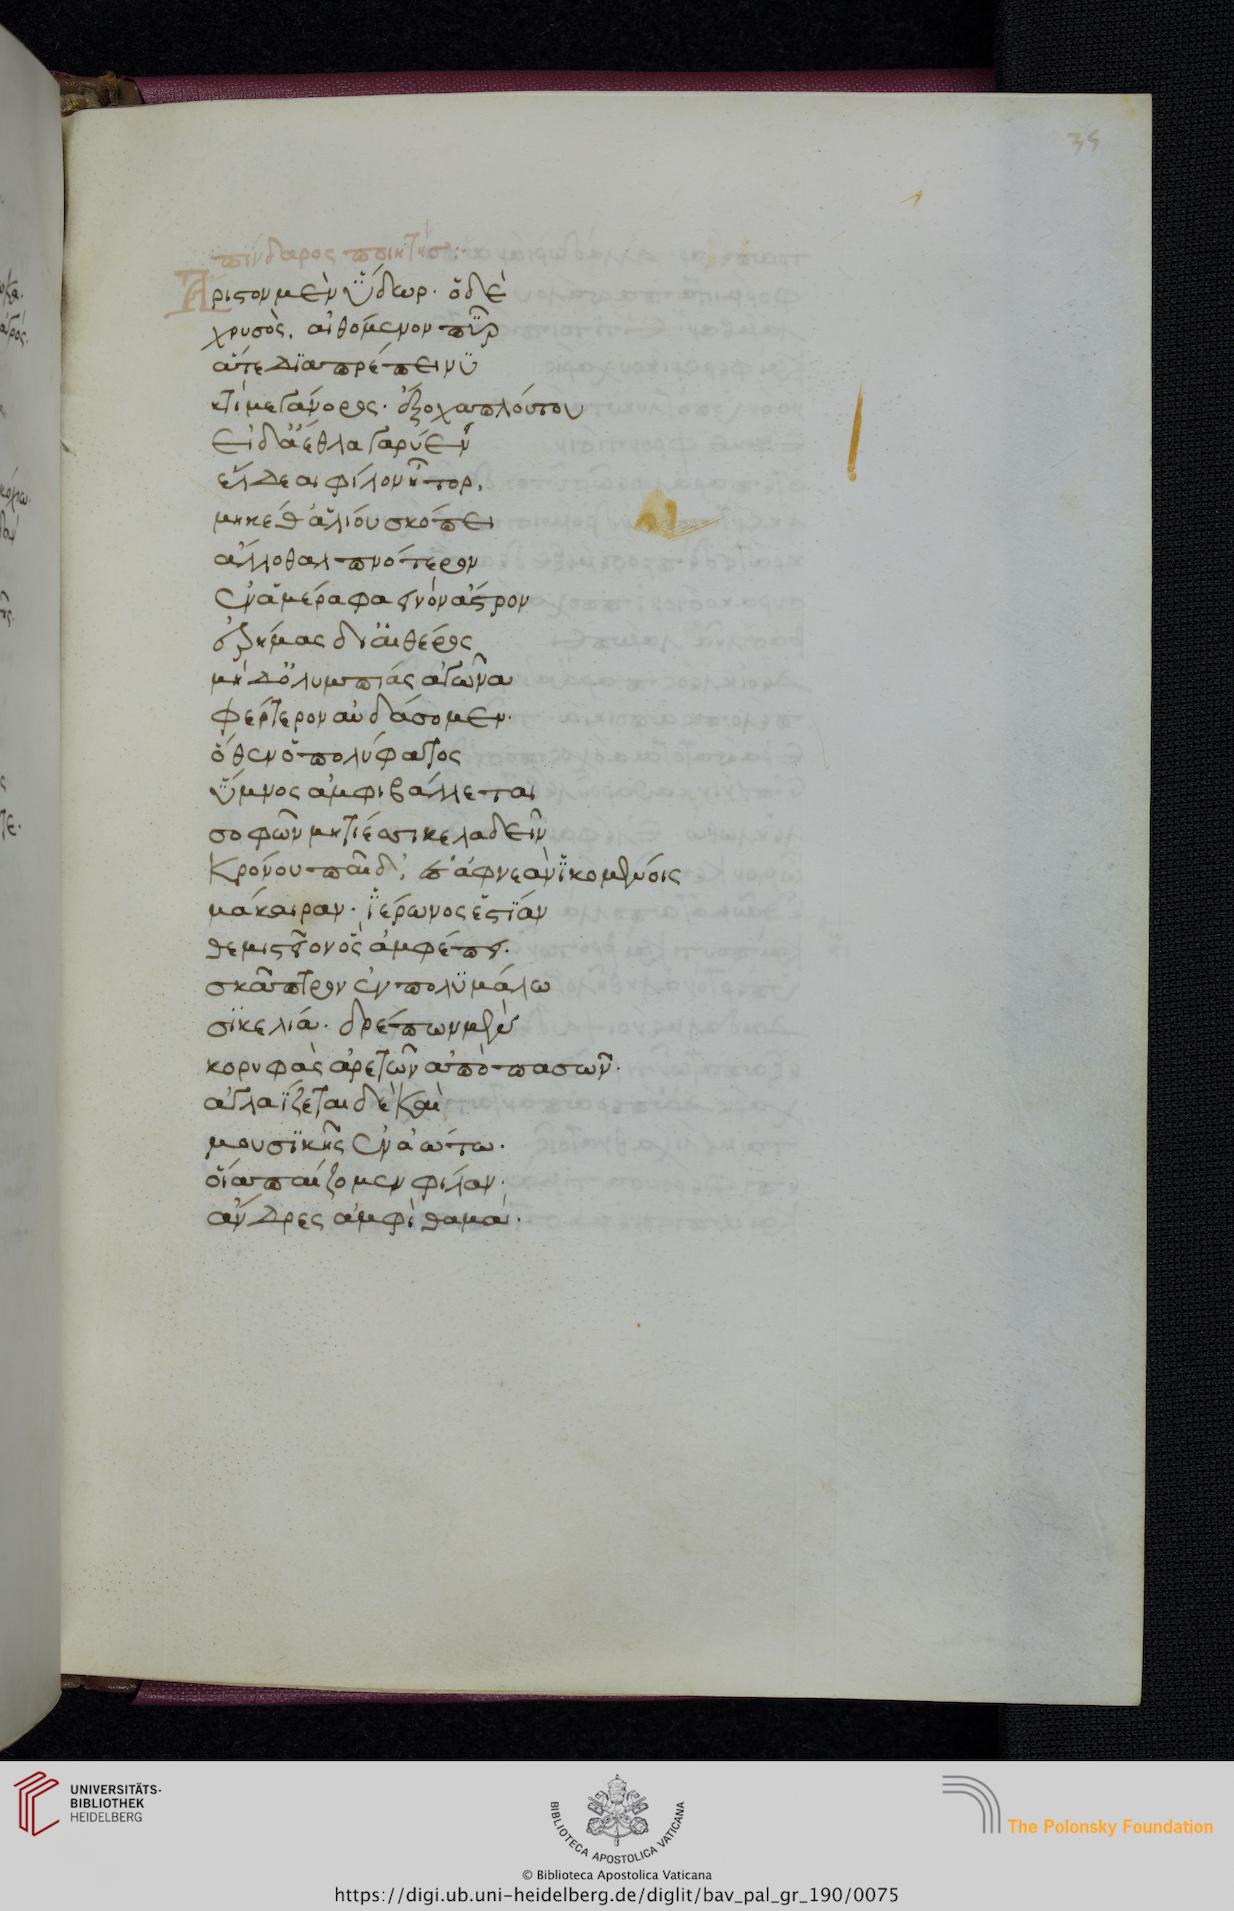 35
πίνδαρος ποιητής :·
Ἄριστον μὲν ὕδωρ· ὁ δὲ
χρυσὸς, αἰθόμενον πῦρ
ἅτε διαπρέπει νυ
κτὶ μεγάνορος ἔξοχα πλούτου
εἰ δ' ἄεθλα γαρύεν
ἔλδεαι φίλον ἦτορ,
μηκέθ' ἁλίου σκόπει
ἄλλο θαλπνότερον
ἐν ἁμέρα φαεινὸν ἄστρον
ἐρήμας δι' αἰθέρος
μὴ δ' ὀλυμπίας ἀγῶνα
φέρτερον αὐδάσομεν·
ὅθεν ὁ πολύφατος
ὕμνος ἀμφιβάλλεται
σοφῶν μητίεσσι κελαδεῖν
Κρόνου παῖδ', ἐς ἀφνεὰν ἱκομένοις
μάκαιραν· ἱέρωνος ἑστίαν
θεμιστεῖον ὃς ἀμφέπει·
σκᾶπτρον ἐν πολυμάλω
σικελία· δρέπων μὲν
κορυφὰς ἀρετῶν ἀπὸ πασῶν·
ἀγλαΐζεται δὲ καὶ
μουσικῆς ἐν ἀώτω·
οἷα παίζομεν φίλαν·
ἄνδρες ἀμφὶ θαμά·
UNIVERSITÄTS-
BIBLIOTHEK
HEIDELBERG
BIBLIOTECA APOSTOLICA VATICANA
The Polonsky Foundation
© Biblioteca Apostolica Vaticana
https://digi.ub.uni-heidelberg.de/diglit/bav_pal_gr_190/0075